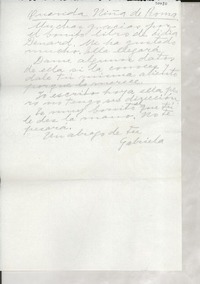 Querida Niña de Romo
Muchas gracias por
el bonito libro de Lydia
Genard. Me ha gustado
mucho. Ella llegará.
Dame algunos datos
de ella si la conoces y
dale tú misma aliento
porque lo merece.
Yo escribo hoy a ella pe
ro no tengo su dirección.
Es muy bonito que tú
le des la mano. No te
pesará.
Un abrazo de tu
Gabriela